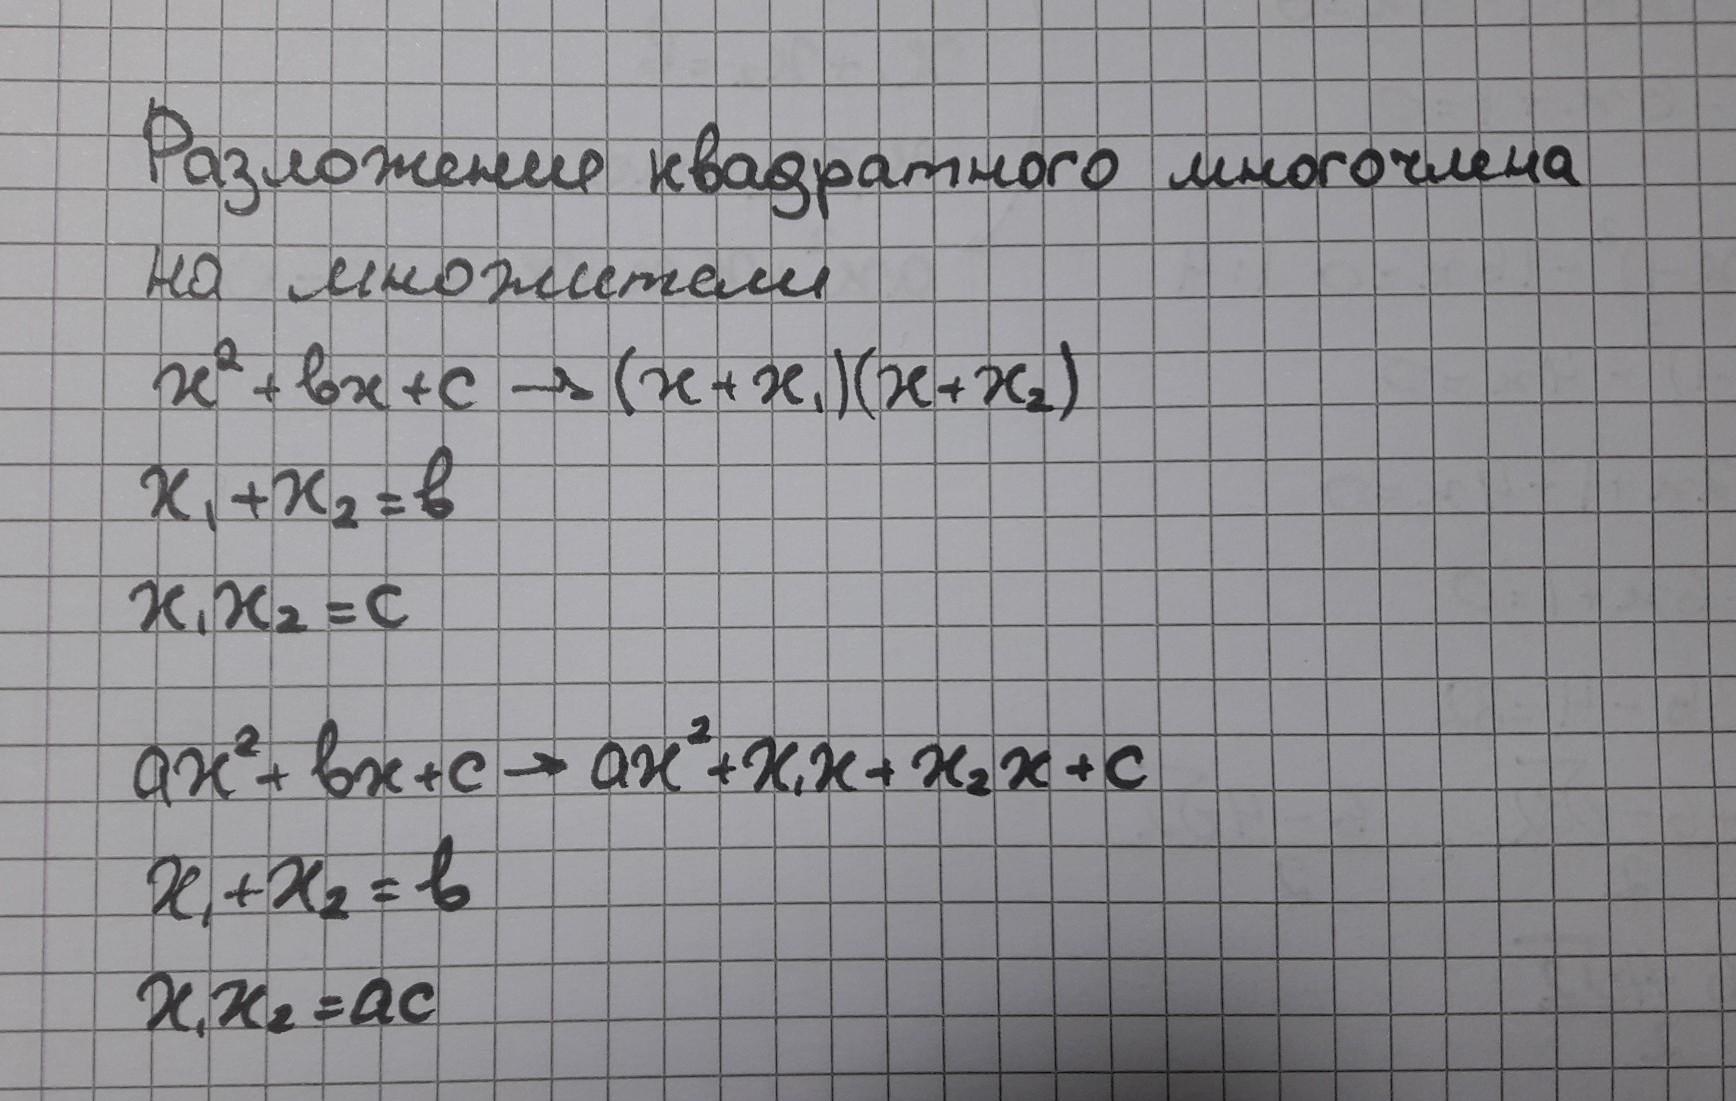 Разложение квадратного многочлена
на множители
x² + bx + c → (x + x₁)(x + x₂)
x₁ + x₂ = b
x₁x₂ = c
ax² + bx + c → ax² + x₁x + x₂x + c
x₁ + x₂ = b
x₁x₂ = ac